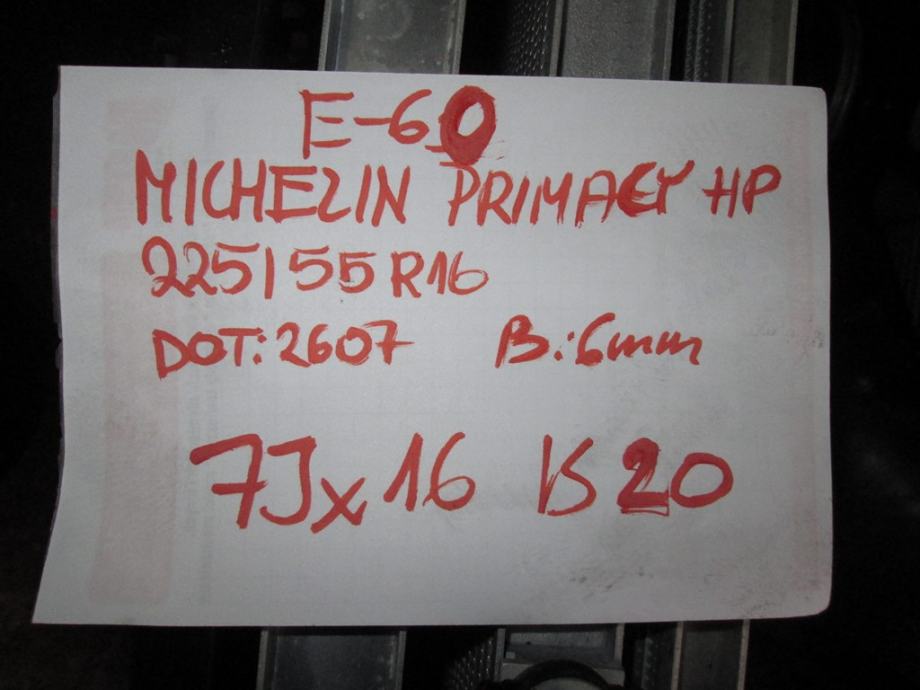 E-60
MICHELIN PRIMACY HP
225/55 R16
DOT: 2607 B.: 6mm
7Jx16 IS 20